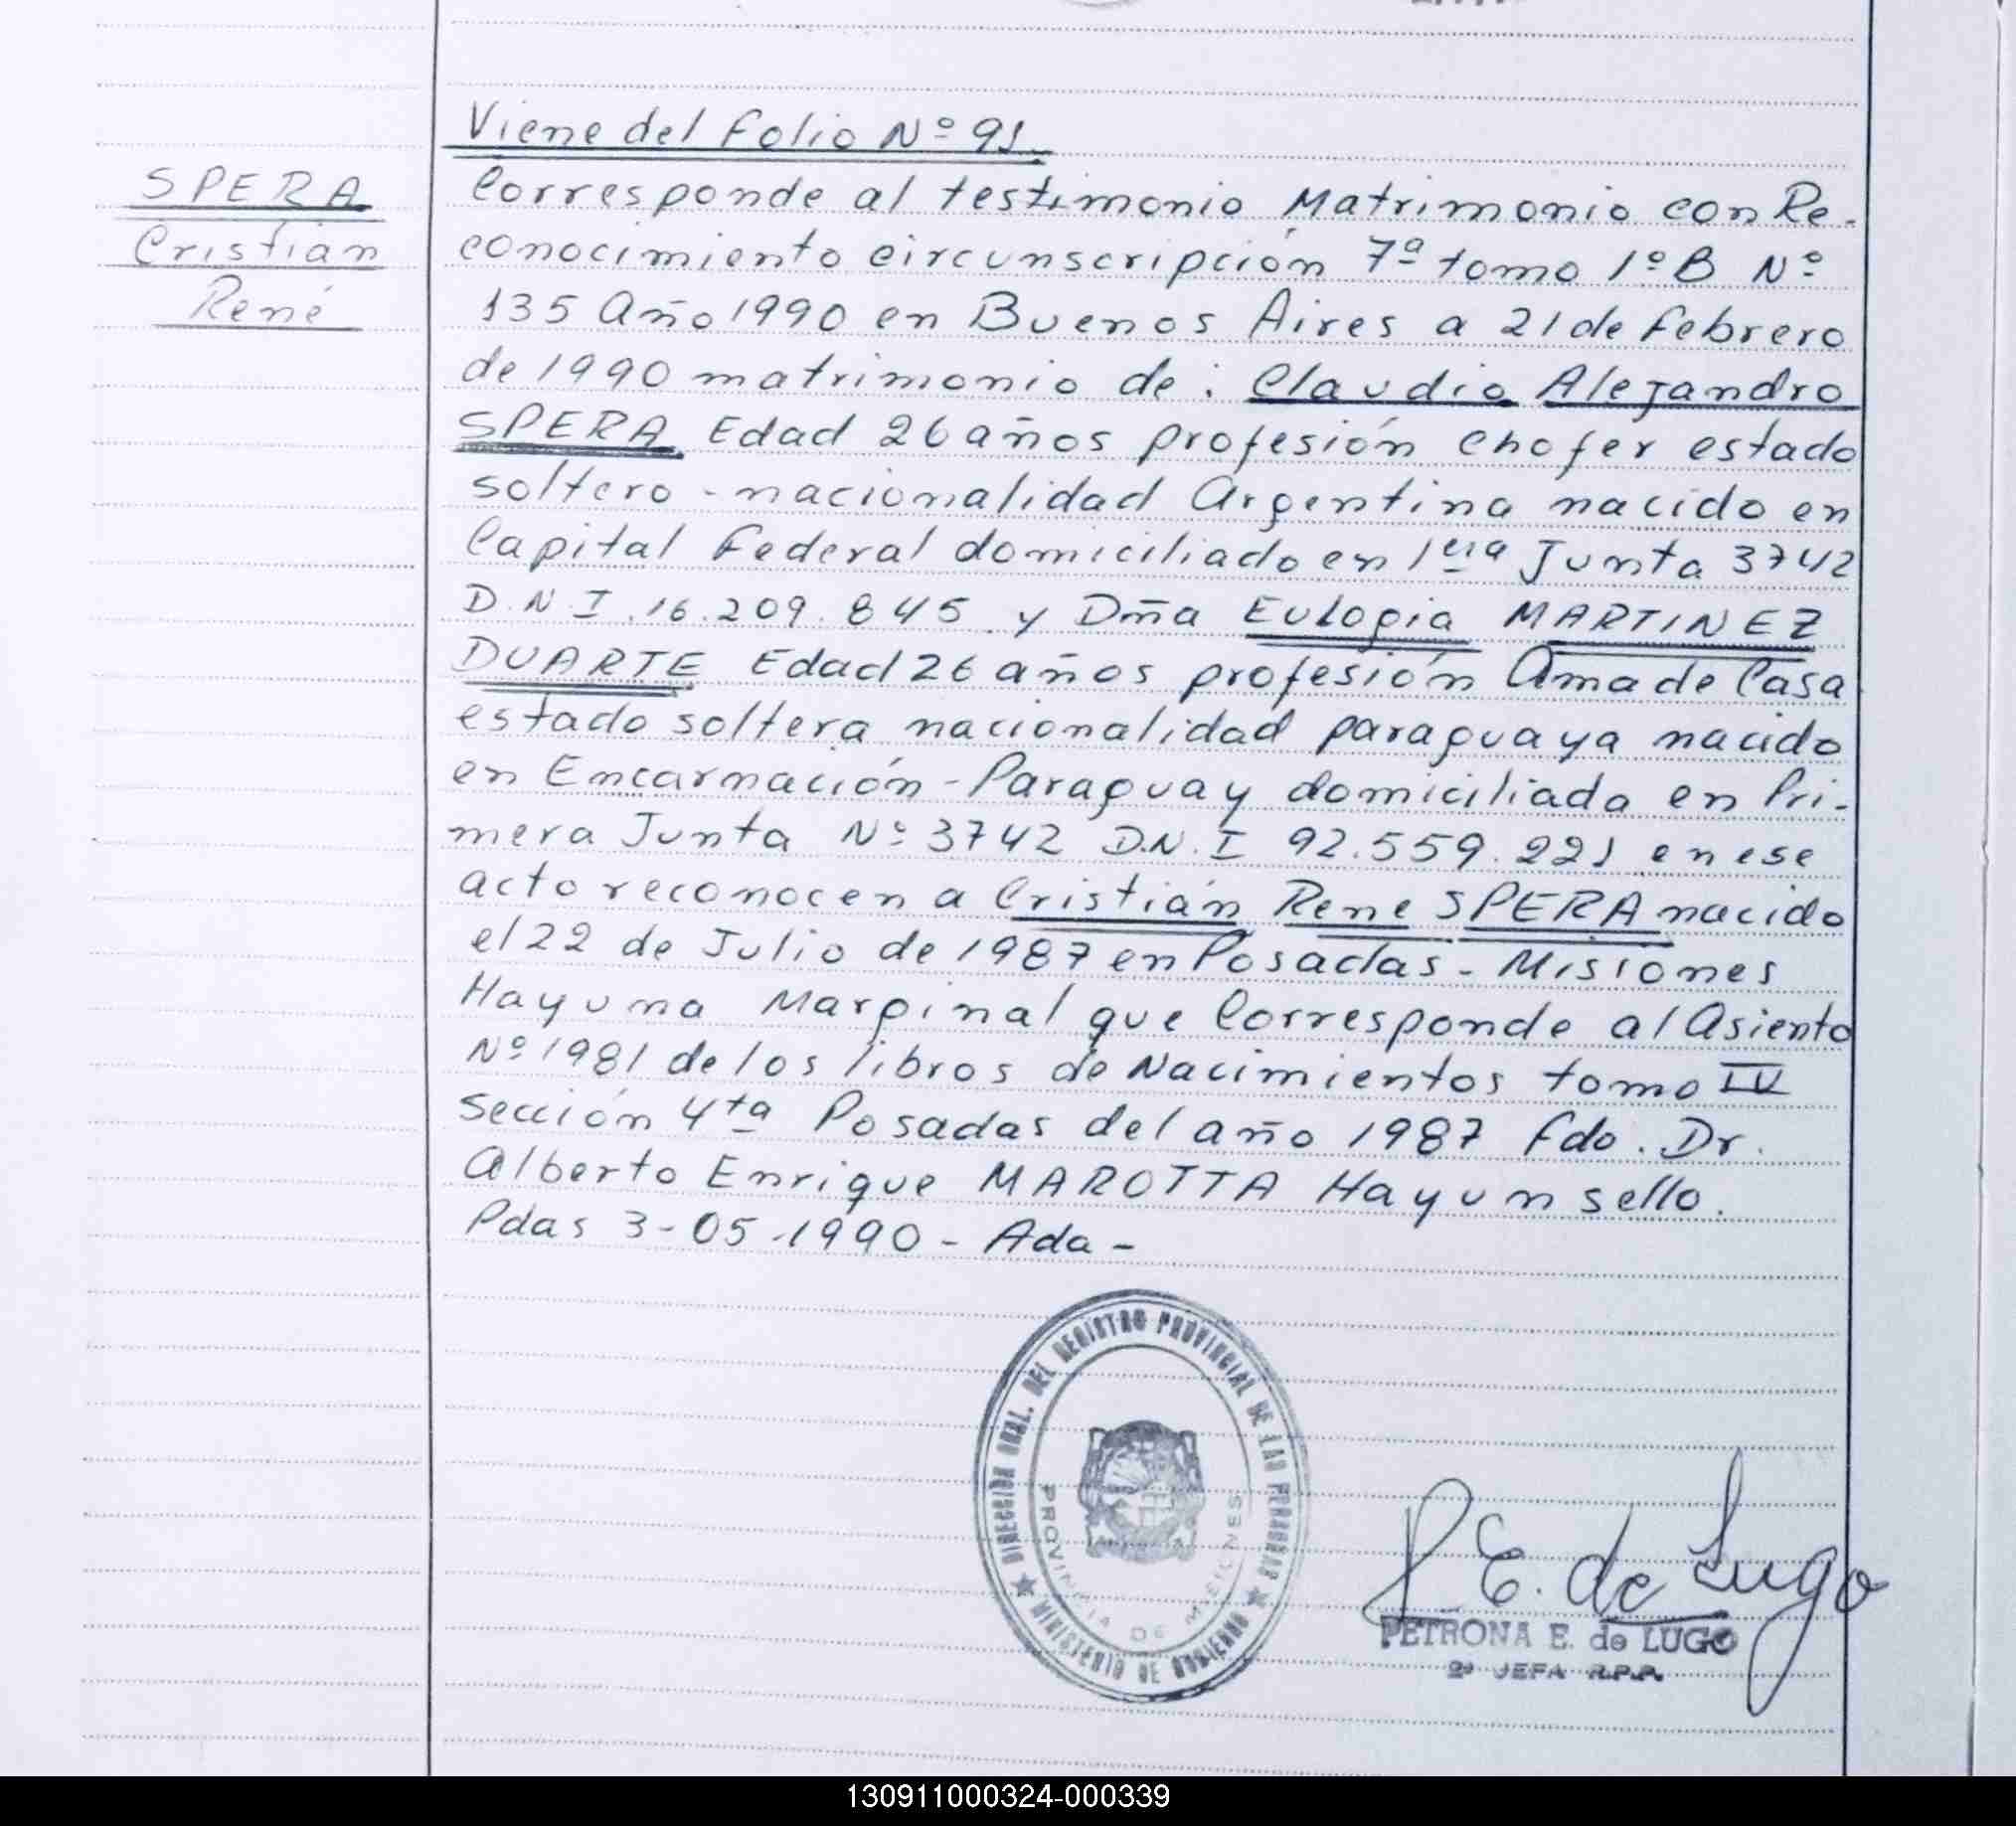 Viene del folio Nº 91
SPERA
Cristián
René
Corresponde al testimonio Matrimonio con Re-
conocimiento circunscripción 7ª tomo 1º B Nº
135 Año 1990 en Buenos Aires a 21 de febrero
de 1990 matrimonio de: Claudio Alejandro
SPERA Edad 26 años profesión chofer estado
soltero - nacionalidad Argentina nacido en
Capital Federal domiciliado en 1era Junta 3742
D.N.I. 16.209.845 y Dña Eulogia MARTINEZ
DUARTE Edad 26 años profesión Ama de Casa
estado soltera nacionalidad paraguaya nacido
en Encarnación - Paraguay domiciliada en Pri-
mera Junta Nº 3742 D.N.I 92.559.221 en ese
acto reconocen a Cristián Rene SPERA nacido
el 22 de Julio de 1987 en Posadas - Misiones
Hay una Marginal que Corresponde al Asiento
Nº 1981 de los libros de Nacimientos tomo IV
Sección 4ta Posadas del año 1987 fdo. Dr.
Alberto Enrique MAROTTA Hay un sello.
Pdas 3-05-1990 - Ada -
DIRECCION GRAL. DEL REGISTRO PROVINCIAL DE LAS PERSONAS
MINISTERIO DE GOBIERNO
PROVINCIA DE MISIONES
P E. de Lugo
PETRONA E. de LUGO
2ª JEFA R.P.P.
130911000324-000339